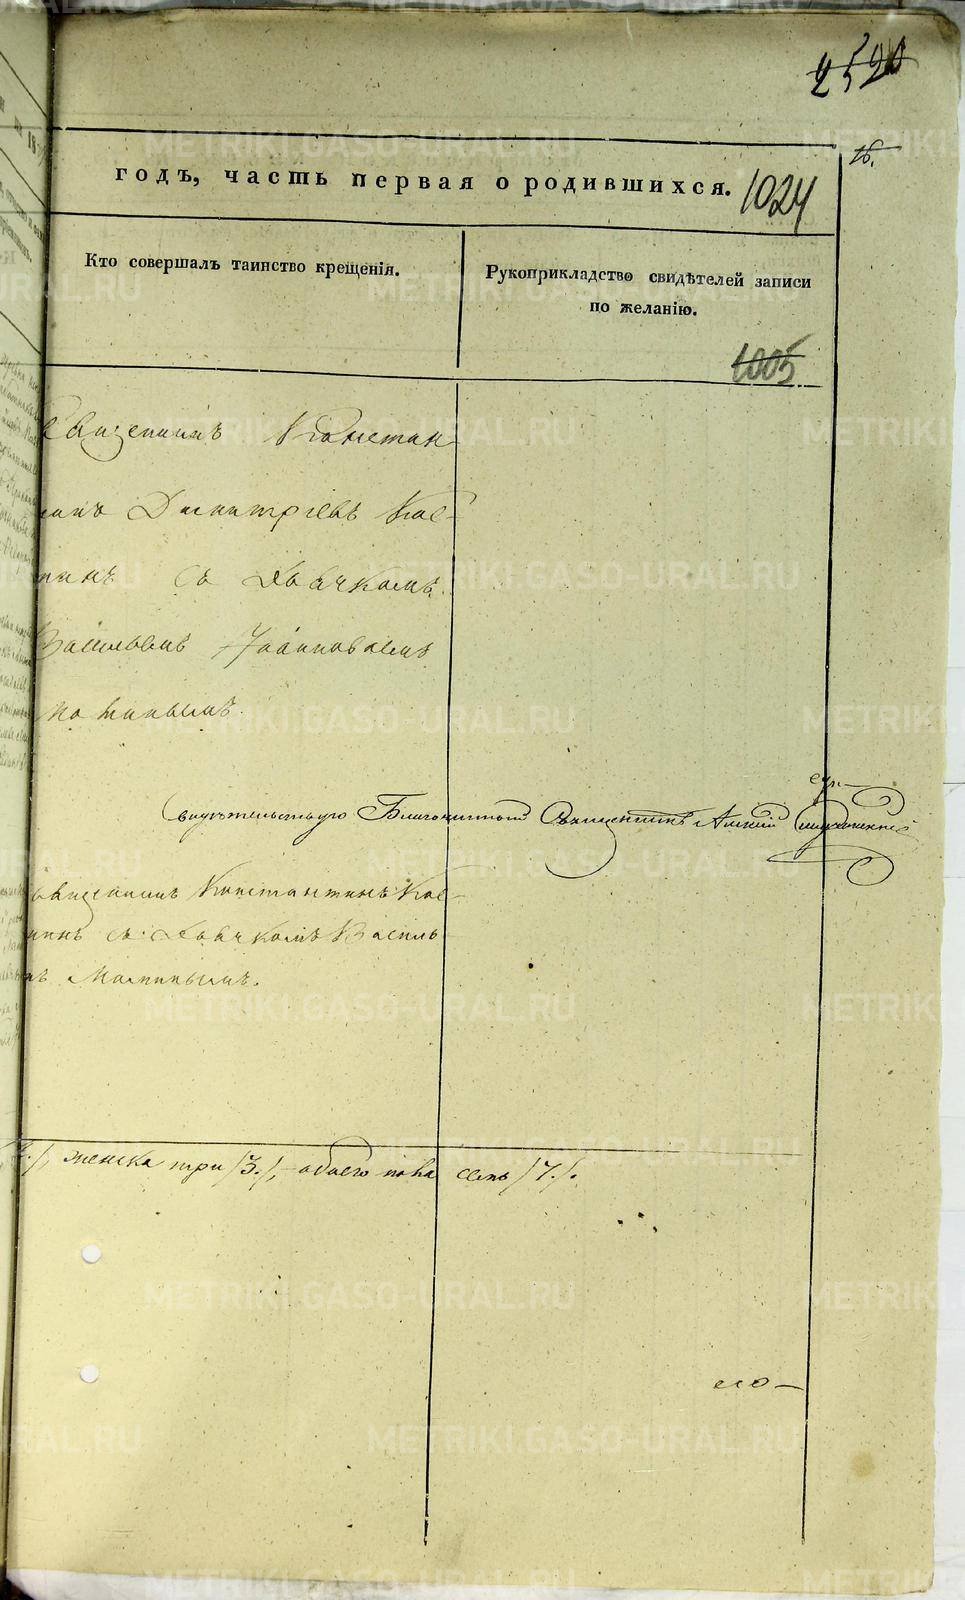 2520
годъ, часть первая о родившихся.
1024
16.
Кто совершалъ таинство крещенія.
Рукоприкладство свидѣтелей записи
по желанію.
1005
Священникъ Констан
тинъ Димитріевъ Кос-
тинъ съ Дьячкомъ
Васильемъ Іоанновымъ
Мотинымъ.
свидѣтельствую Благочинный Священникъ Алексій
Священникъ Константинъ Кос-
тинъ съ Дьячкомъ Василь
Мотинымъ.
женска три /3./, обоего пола семь /7./.
его
METRIKI.GASO-URAL.RU